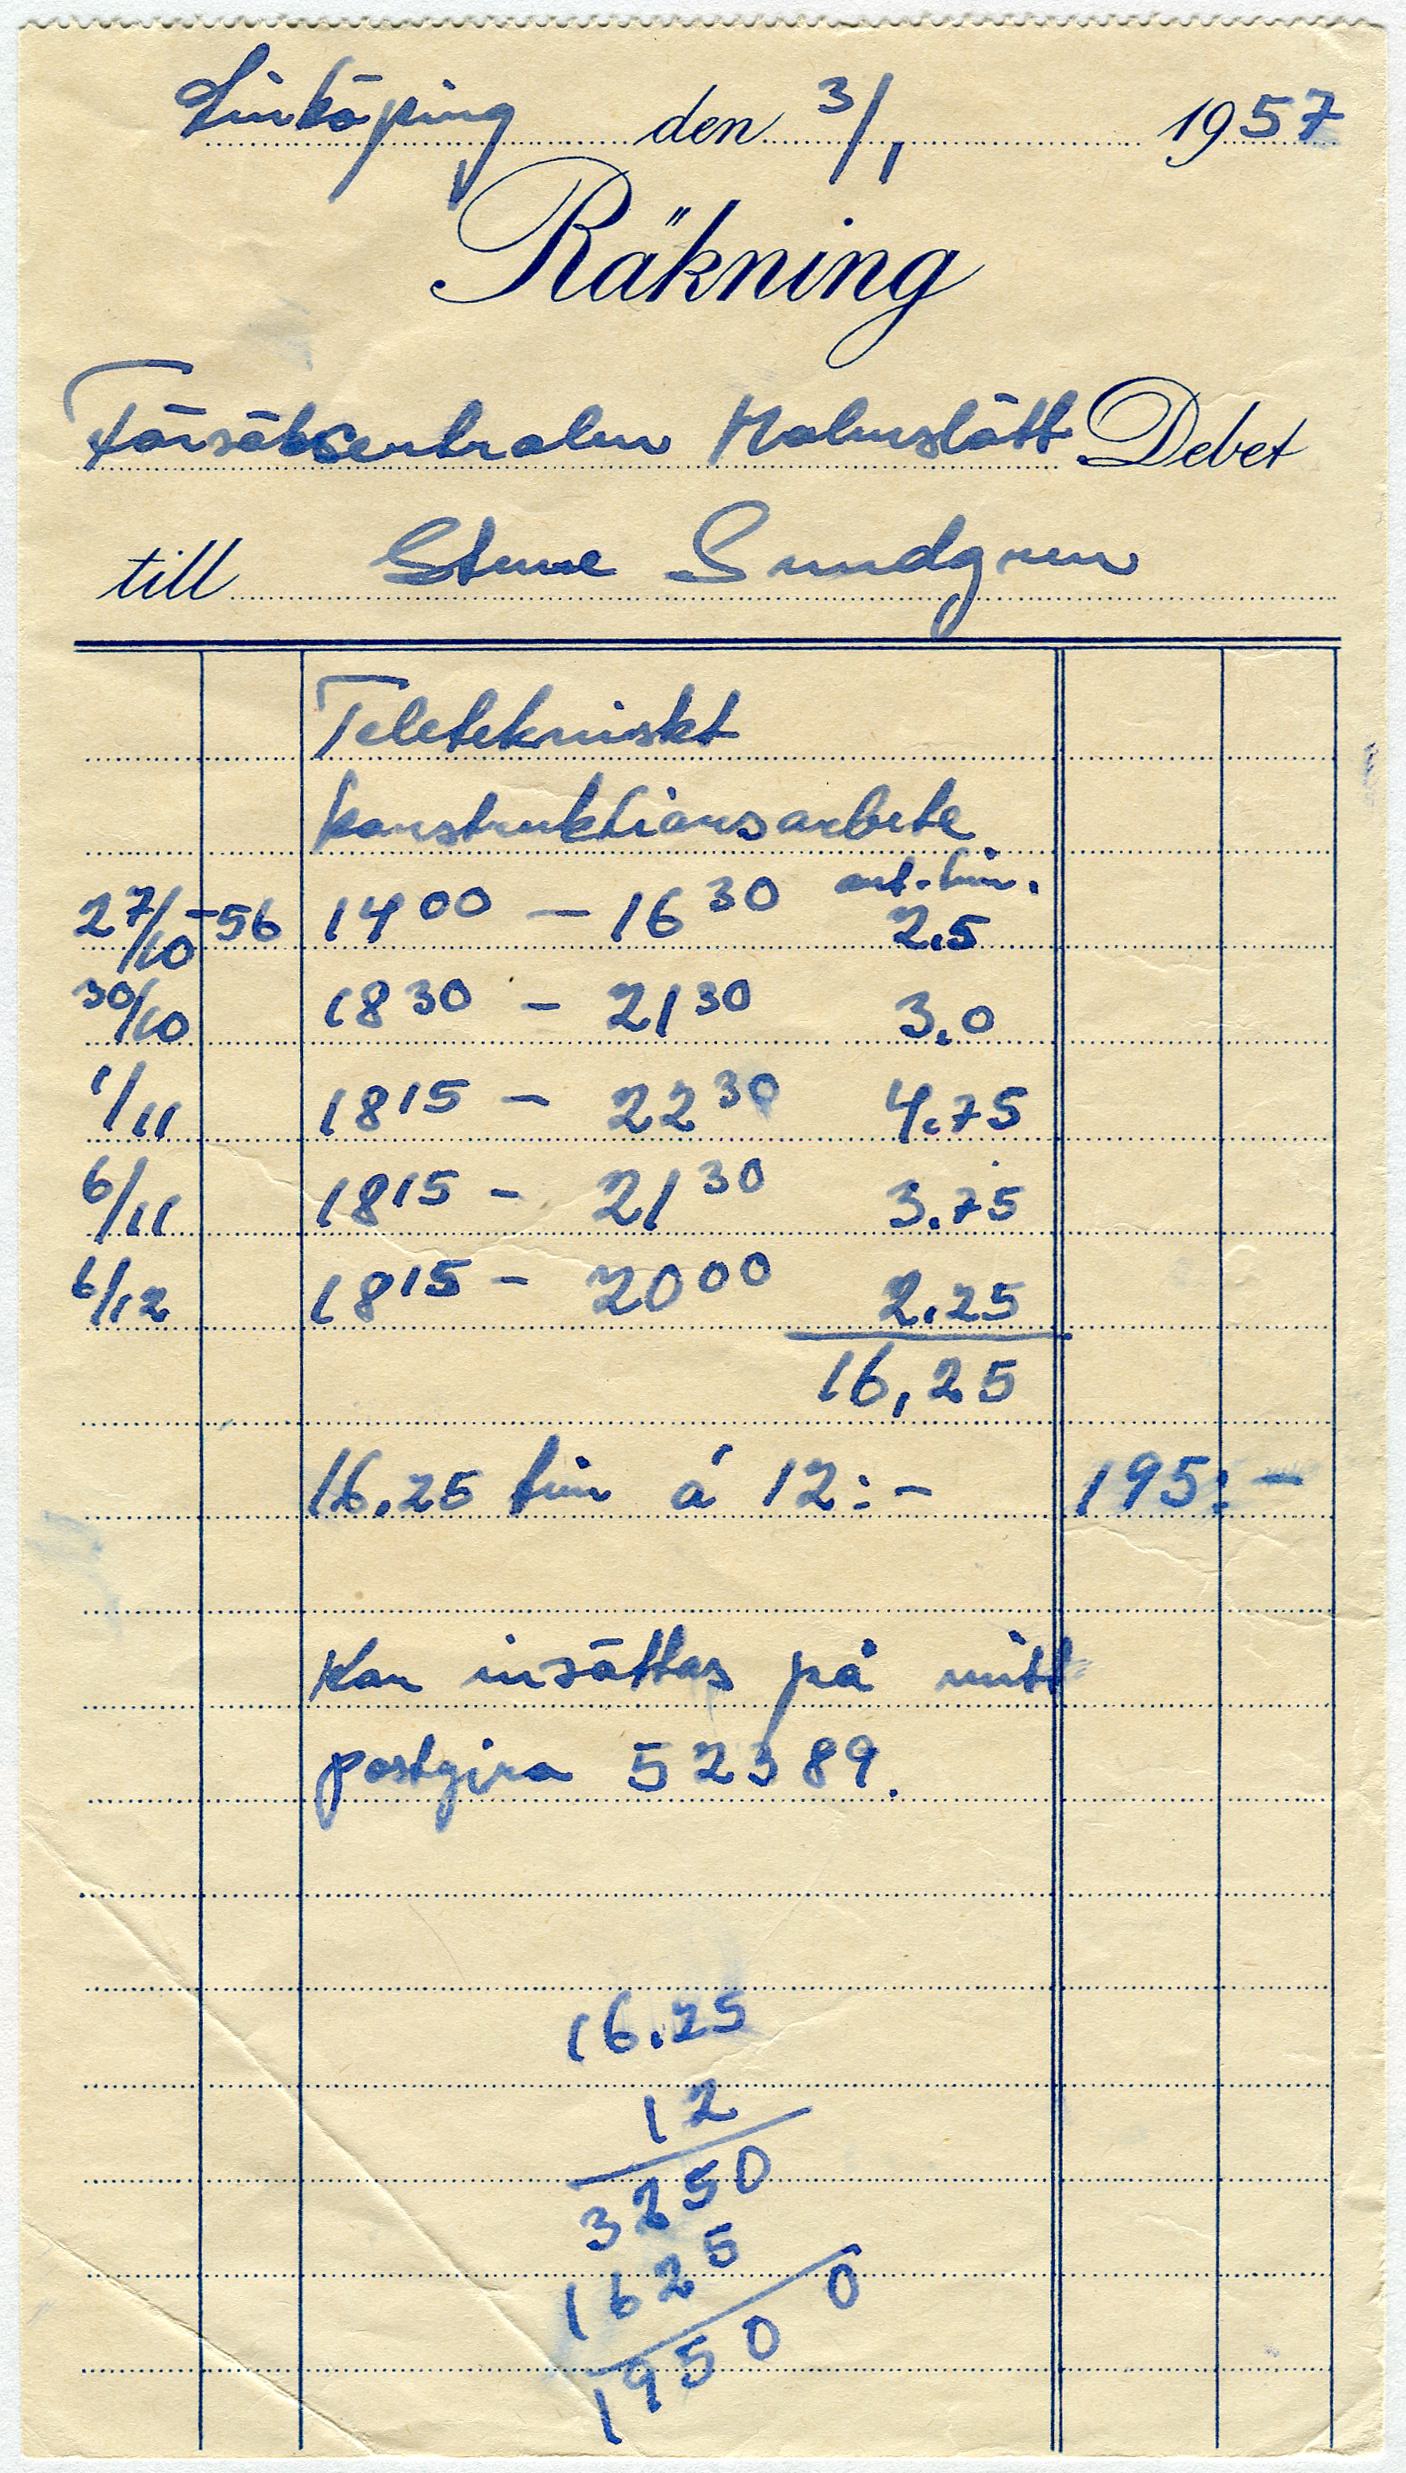 Linköping den 3/1 1957
Räkning
Försökscentralen Malmslätt Debet
till Sture Sundgren
Teletekniskt
konstruktionsarbete
ant. tim.
27/10 -56 14 00 - 16 30 2.5
30/10 18 30 - 21 30 3.0
1/11 18 15 - 22 30 4.75
6/11 18 15 - 21 30 3.75
6/12 18 15 - 20 00 2.25
16,25
16.25 tim á 12:- 195:-
Kan insättas på mitt
postgiro 52389.
16.25
12
3250
1625
19500